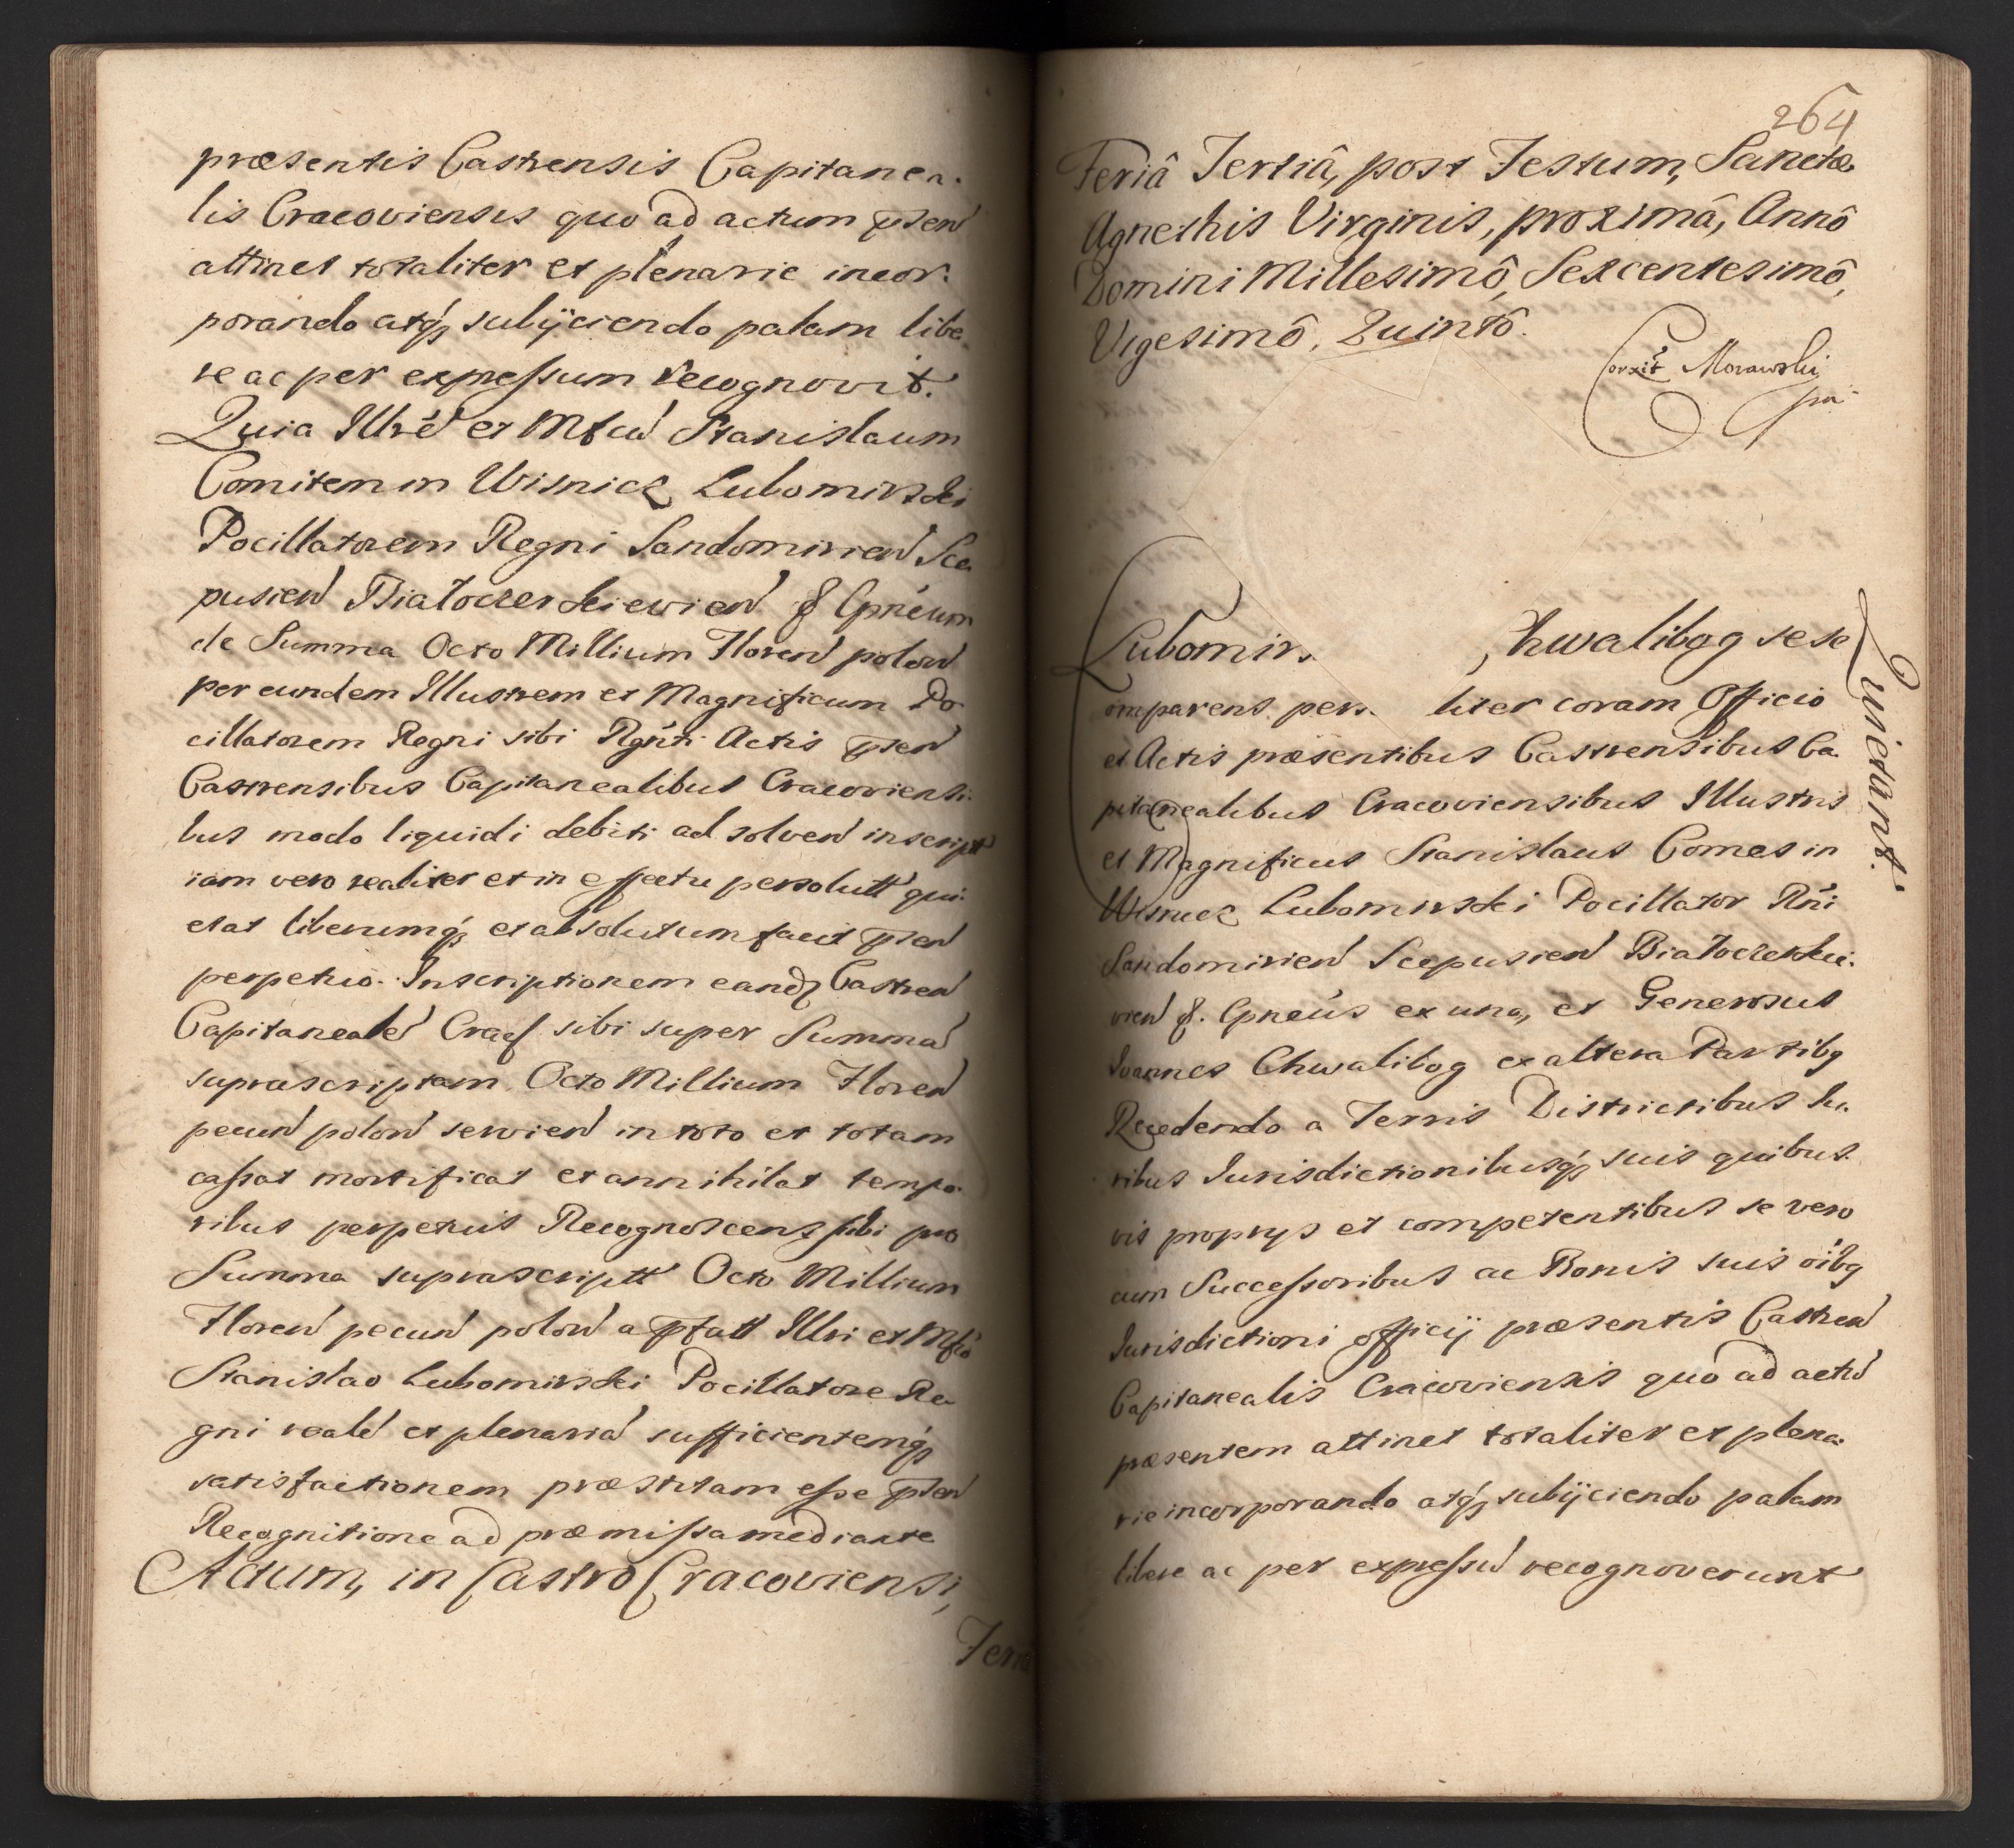 præsentis Castrensis Capitanea.
lis Cracoviensis quo ad actum pñsen
attinet totaliter et plenarie incor:
porando atq₃ subijciendo palam libe
re ac per expressum recognovit.
Quia Illrē et Mfcū Stanislaum
Comitem in Wisnicz Lubomirski
Pocillatorem Regni Sandomirien Sce
pusien Białocerkiewien & Gpnēum
de Summa Octo Millium Floren polon
per eundem Illustrem et Magnificum Po
cillatorem Regni sibi Rgñti Actis pñsen
Castrensibus Capitanealibus Cracoviensi:
bus modo liquidi debiti ad solven inscript
iam vero realiter et in effectu persolutt qui:
etat liberumq₃ et absolutum facit pñsen
perpetuo. Inscriptionem eand₃ Castren
Capitaneale Crac sibi super Summa
suprascriptam Octo Millium Floren
pecun polon servien in toto et totam
cassat mortificat et annihilat tempo:
ribus perpetuis Recognoscens sibi pro
Summa suprascriptt Octo Millium
Floren pecun polon a pfatt Illri et Mfco
Stanislao Lubomirski Pocillatore Re
gni reale et plenaria sufficientemq₃
satisfactionem præstitam esse pñsen
Recognitione ad præmissa mediante
Actum, in Castro Cracoviensi,
Feria
264
Feriâ Tertiâ, post Festum, Sanctæ
Agnethis Virginis, proximâ, Annô
Domini Millesimô, Sexcentesimô,
Vigesimô, Quintô.
Correxit Morawski
Lubomirs. Chwalibog sese
Quietant.
omparens pers. liter coram Officio
et Actis præsentibus Castrensibus Ca
pitanealibus Cracoviensibus Illustris
et Magnificus Stanislaus Comes in
Wisnicz Lubomirski Pocillator Rñi
Sandomirien Scepusien Białocerkie:
vien &. Gpnēus ex una, et Generosus
Ioannes Chwalibog ex altera Partibq
Recedendo a Terris Districtibus Iu.
ribus Iurisdictionibusq₃ suis quibus.
vis proprys et competentibus se vero
cum Successoribus ac Bonis suis oibq
Iurisdictioni officij præsentis Castren
Capitanealis Cracoviensis quo ad actu
præsentem attinet totaliter et plena:
rie incorporando atq₃ subijciendo palam
libere ac per expressū recognoverunt